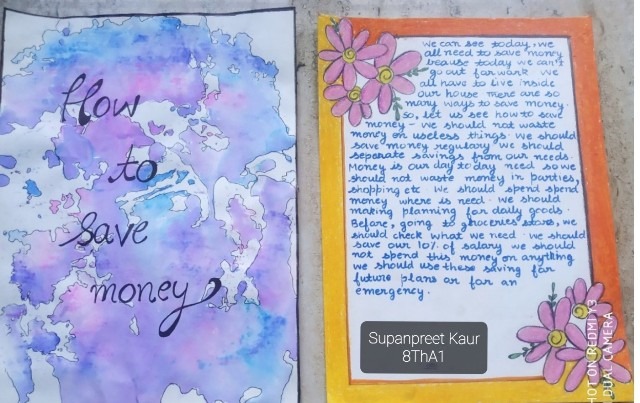 How
to
save
money
we can see today, we
all need to save money
beause today we can't
go out for work we
all have to live inside
our house There are so
many ways to save money.
So, let us see how to save
money - we should not waste
money on useless things. we should
save money regulary we should
seperate savings from our needs.
Money is our day to day need so we
should not waste money in parties,
shopping etc we should spend spend
money where is need. we should
making planning for daily goods.
Before, going to groceries stores, we
should check what we need. we should
save our 10% of salary we should
not spend this money on anything
we should use these saving for
future plans or for an
emergency.
Supanpreet Kaur
8ThA1
SHOT ON REDMI Y3
DUAL CAMERA